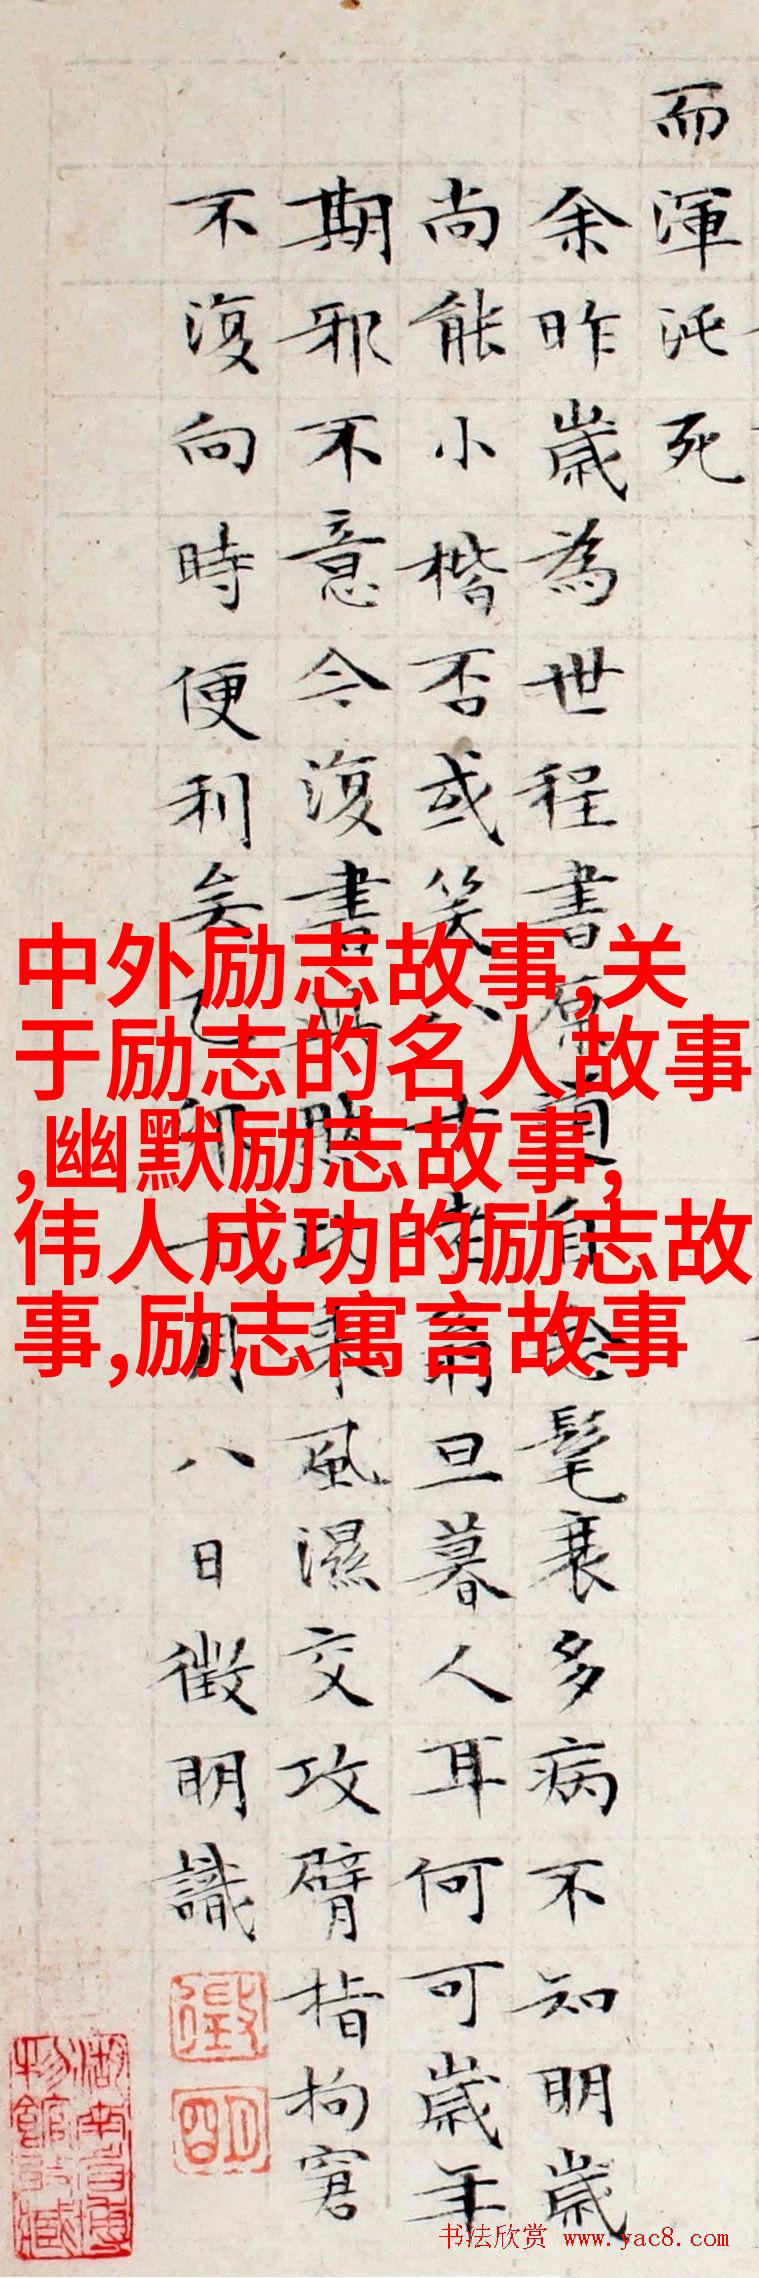 而渾沌死
余昨歲為世程書自念髦衰多病不知明歲
尚能小楷否或笑八十老翁旦暮人耳何可歲年
期邪不意今復書風濕交攻臂指拘窘
不復向時便利矣月八日徵明識
中外励志故事,关
于励志的名人故事
,幽默励志故事,
伟人成功的励志故
事,励志寓言故事
书法欣赏 www.yac8.com